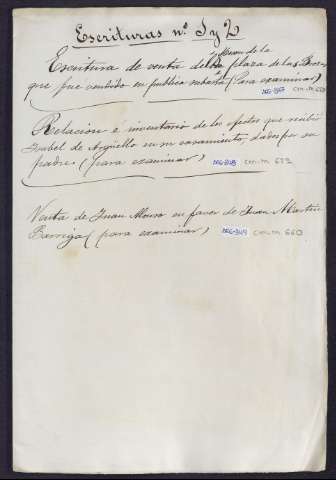 Escrituras nº 1 y 2
Escritura de venta del Meson de la plaza de las Brozas
que fue vendido en publica subasta (Para examinar)
Relacion é inventario de los efectos que recibió
Isabel de Argüello en su casamiento, dados por su
padre (para examinar)
Venta de Juan Mouro en favor de Juan Martin
Barriga (para examinar)